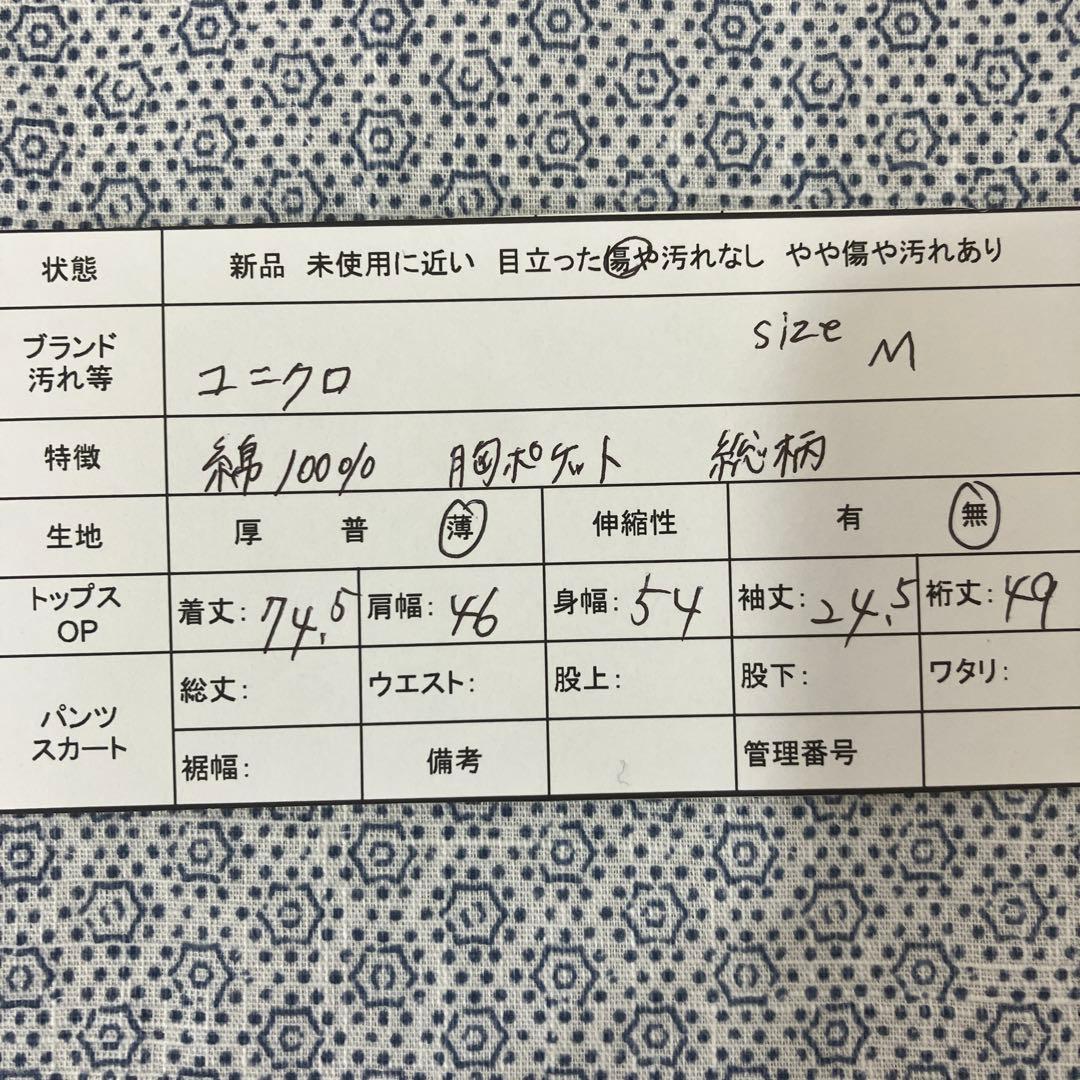 状態 新品 未使用に近い 目立った傷や汚れなし やや傷や汚れあり
ブランド 汚れ等 ユニクロ size M
特徴 綿100% 胸ポケット 総柄
生地 厚 普 薄 伸縮性 有 無
トップス OP 着丈: 74.5 肩幅: 46 身幅: 54 袖丈: 24.5 裄丈: 49
パンツ スカート 総丈: ウエスト: 股上: 股下: ワタリ:
裾幅: 備考 管理番号